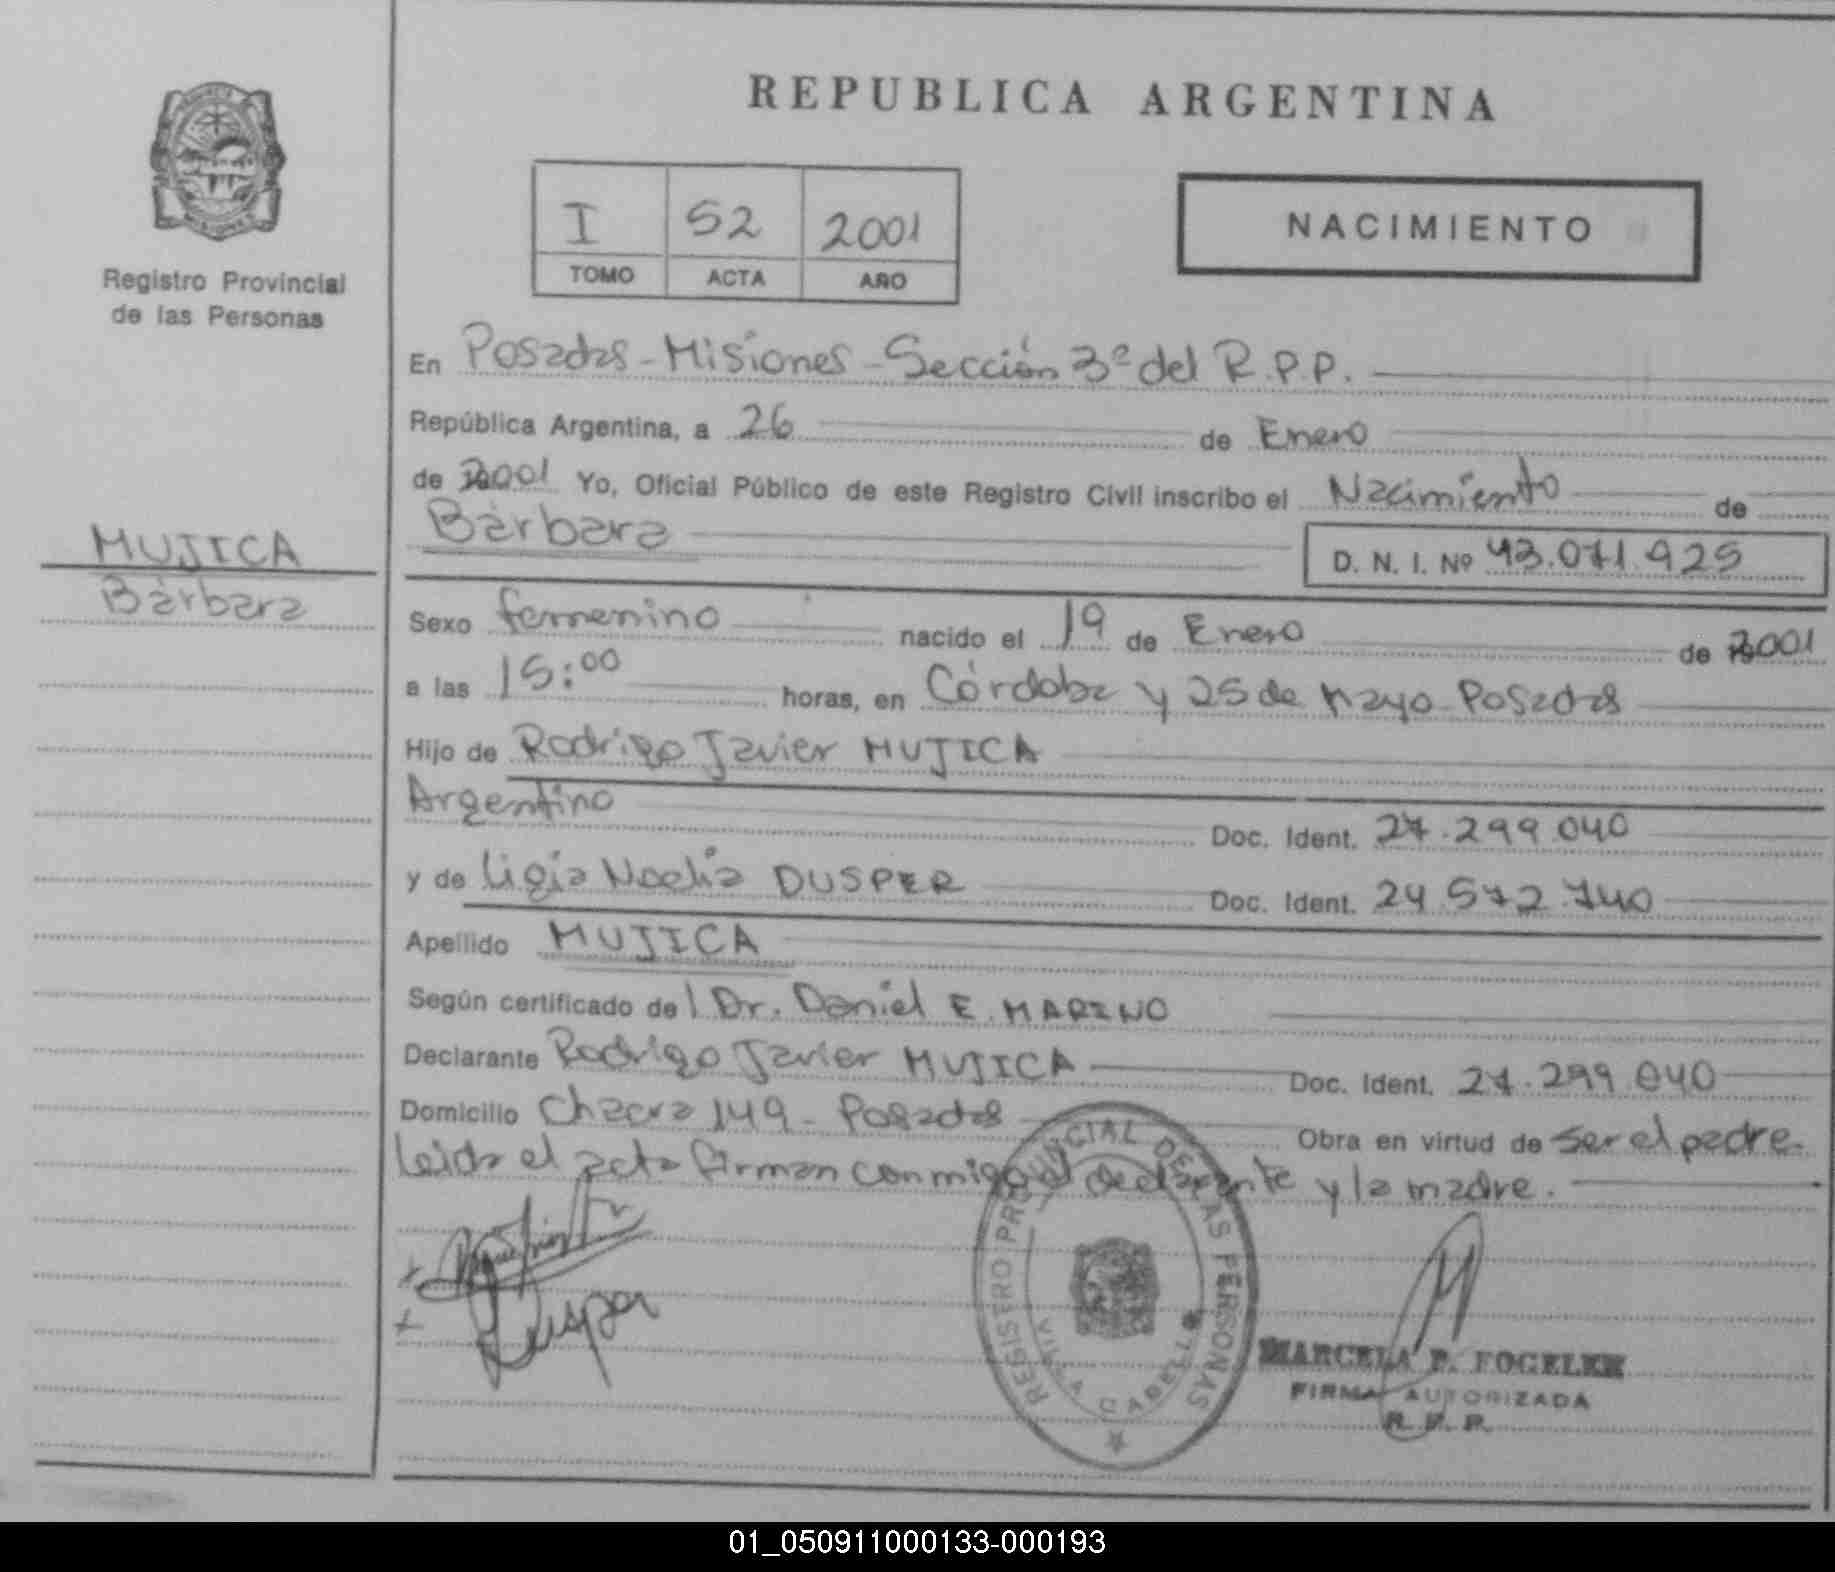 REPUBLICA ARGENTINA
Registro Provincial
de las Personas
I 52 2001
TOMO ACTA AÑO
NACIMIENTO
MUJICA
Bárbara
En Posadas - Misiones - Sección 3º del R.P.P.
República Argentina, a 26 de Enero
de 2001 Yo, Oficial Público de este Registro Civil inscribo el Nacimiento de
Bárbara
D. N. I. Nº 43.071.925
Sexo femenino nacido el 19 de Enero de 2001
a las 15:00 horas, en Córdoba y 25 de Mayo - Posadas
Hijo de Rodrigo Javier MUJICA
Argentino Doc. Ident. 27.299.040
y de Ligia Noelia DUSPER Doc. Ident. 24.572.740
Apellido MUJICA
Según certificado del Dr. Daniel E. MARINO
Declarante Rodrigo Javier MUJICA Doc. Ident. 27.299.040
Domicilio Chacra 149 - Posadas Obra en virtud de ser el padre.
Leída el acta firman conmigo el declarante y la madre.
Dusper
REGISTRO PROVINCIAL DE LAS PERSONAS
VILLA CABELLO
MARCELA F. FOGELER
FIRMA AUTORIZADA
R. P. P.
01_050911000133-000193